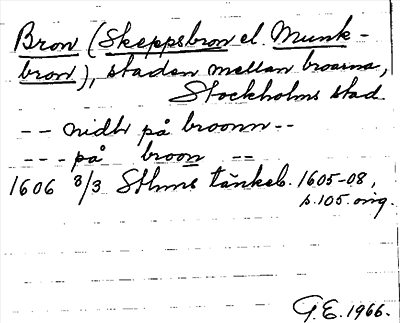 Bron (Skeppsbron el. Munk-
bron), staden mellan broarna,
Stockholms stad
-- nidh på broonn --
--- på broon --
1606 3/3 Sthms tänkeb. 1605-08,
s. 105. orig.
G.E. 1966.